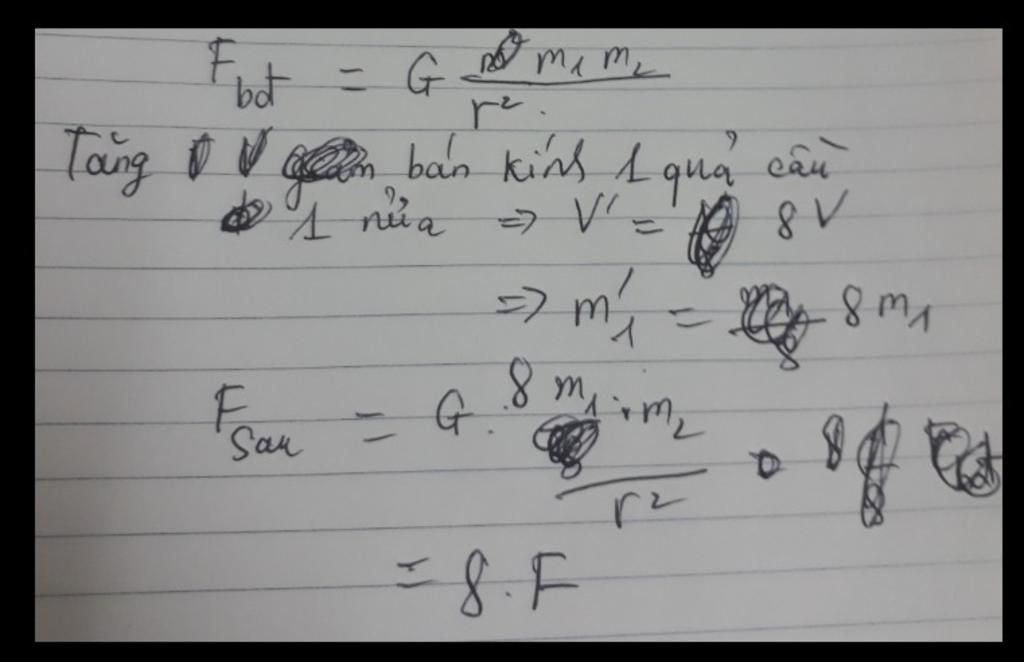 F bđ = G m₁ m₂ / r².
Tăng bán kính 1 quả cầu
1 nửa => V' = 8 V
=> m₁' = 8 m₁
F sau = G . 8 m₁ . m₂ / r²
= 8 . F